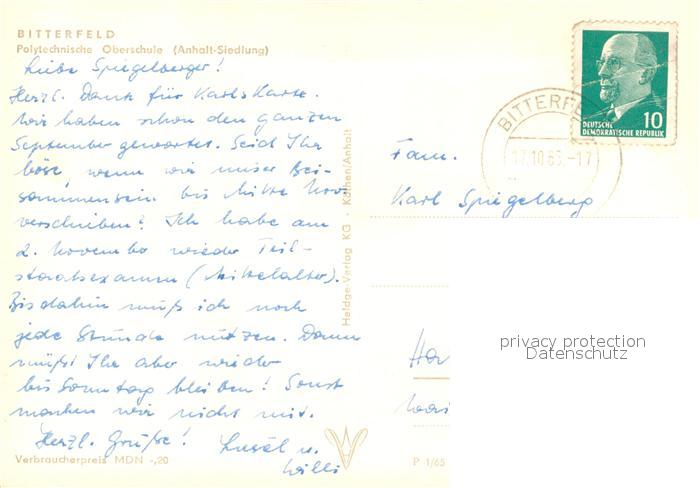 BITTERFELD
Polytechnische Oberschule (Anhalt-Siedlung)
Liebe Spiegelberger!
Herzl. Dank für Karls Karte.
Wir haben schon den ganzen
September gewartet. Seid Ihr
böse, wenn wir unser Bei-
sammensein bis Mitte Nov.
verschieben? Ich habe am
2. November wieder Teil-
staatsexamen (Mittelalter).
Bis dahin muß ich noch
jede Stunde nutzen. Dann
müßt Ihr aber wieder
bis Sonntag bleiben! Sonst
machen wir nicht mit.
Herzl. Grüße!
u.
Willi
Verbraucherpreis MDN -,20
Heldge-Verlag KG · Köthen/Anhalt
P 1/65
BITTERFE
17.10.65.-17
10
DEUTSCHE
DEMOKRATISCHE REPUBLIK
Fam.
Karl Spiegelberg
privacy protection
Datenschutz